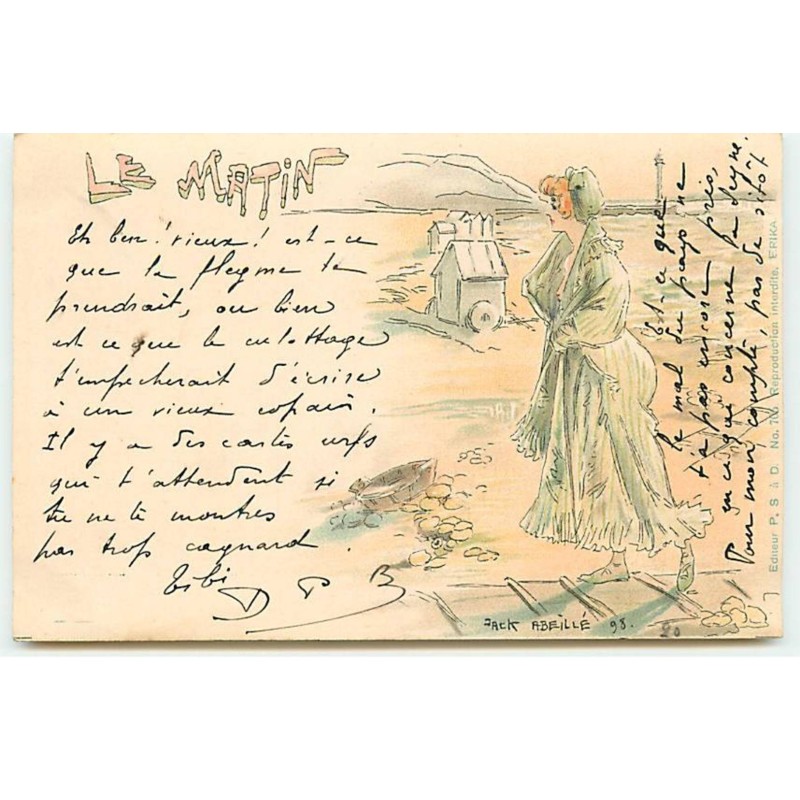 LE MATIN
Eh bien ! vieux ! est-ce
que la flegme te
prendrait, ou bien
est ce que le culottage
t'empecherait d'écrire
à un vieux copain.
Il y a des cartes
qui t'attendent si
tu ne te montres
pas trop cagnard.
Bibi
D P B
Est-ce que
le mal du pays ne
t'a pas encore pris,
en ce qui concerne
Pour mon compte, pas de sitôt
JACK ABEILLÉ 98.
20
Editeur P. S à D. No. Reproduction interdite. ERIKA